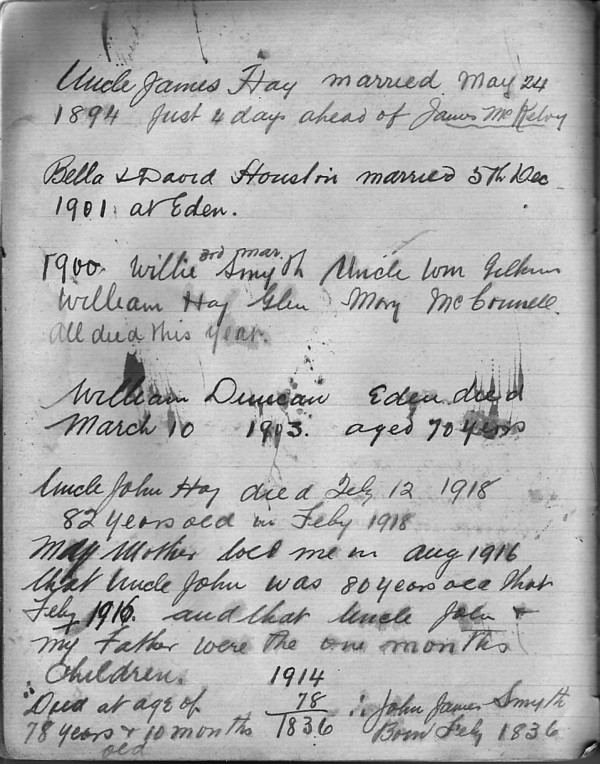 Uncle James Hay married May 24
1894 just 4 days ahead of James McKelvy
Bella & David Houston married 5th Dec
1901 at Eden.
3rd mar.
1900. Willie Smyth Uncle Wm
William Hay Glen Mary McConnell.
all died this year.
William Duncan Eden died
March 10 1903. aged 70 years
Uncle John Hay died Feby 12 1918
82 years old in Feby 1918
My Mother told me in Aug 1916
that Uncle John was 80 years old that
Feby 1916. and that Uncle John &
my Father were the one months
Children. 1914
Died at age of 78 ∴ John James Smyth
78 years & 10 months 1836 Born Feby 1836
old